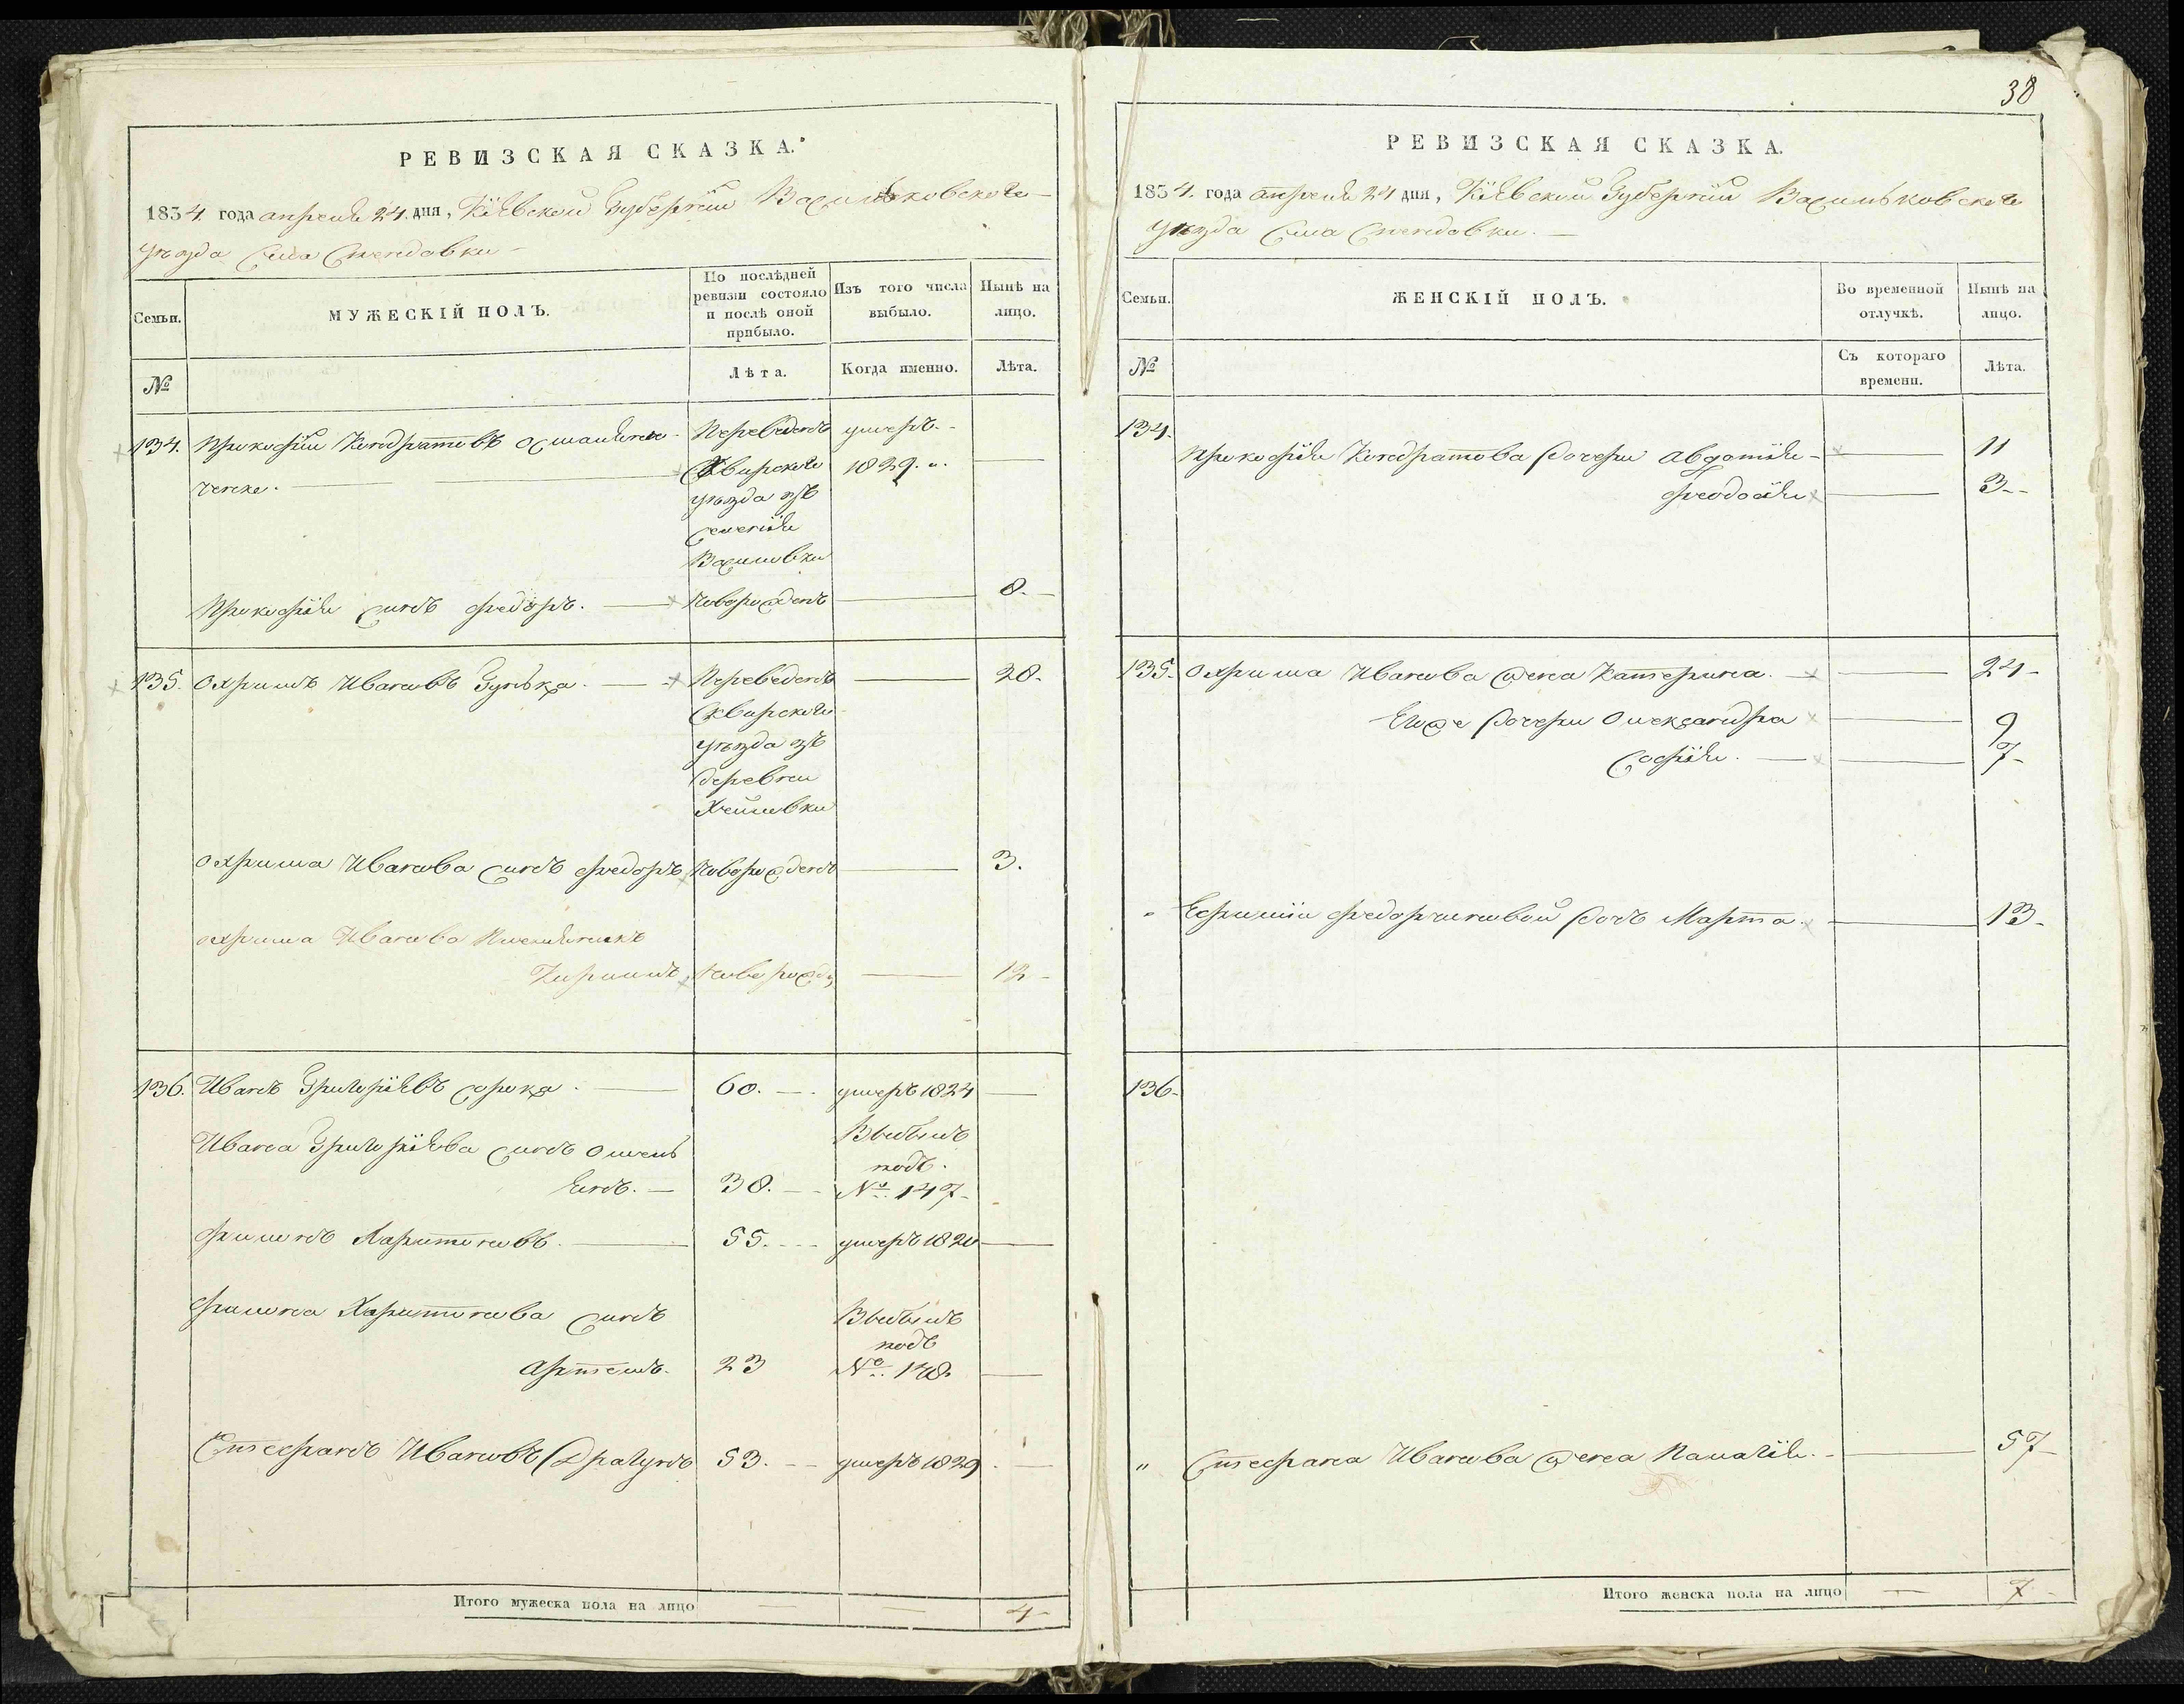 РЕВИЗСКАЯ СКАЗКА.
1834. года апреля 24. дня, Кіевской Губерніи Васильковскаго
уѣзда Села
Семьи.
МУЖЕСКІЙ ПОЛЪ.
По послѣдней
ревизіи состояло
и послѣ оной
прибыло.
Изъ того числа
выбыло.
Нынѣ на
лицо.
№
Лѣта.
Когда именно.
Лѣта.
134. Прокофій Кондратовъ Переведенъ умеръ
ченко. Сквирскаго 1829.
уѣзда изъ
селенія
Василовки
Прокофія сынъ Федоръ. Новорожденъ 8.
135. Охримъ Ивановъ Гунька Переведенъ 28.
Сквирскаго
уѣзда изъ
деревни
Охрима Иванова сынъ Федоръ Новорожденъ 3.
Охрима Иванова Племянникъ
Кирилъ Новорожд 12
136. Иванъ Григоріевъ Сорока 60. умеръ 1824
Ивана Григоріева сынъ Омель Выбылъ
подъ
янъ. 38. № 147
Филонъ Харитоновъ. 55. умеръ 1820
Филона Харитонова сынъ Выбылъ
подъ
Артемъ. 23 № 148.
Стефанъ Ивановъ Драгунъ 53. умеръ 1829
Итого мужеска пола на лицо 4
38
РЕВИЗСКАЯ СКАЗКА.
1834. года апреля 24 дня, Кіевской Губерніи Васильковскаго
уѣзда Села
Семьи.
ЖЕНСКІЙ ПОЛЪ.
Во временной
отлучкѣ.
Нынѣ на
лицо.
№
Съ котораго
времени.
Лѣта.
134.
Прокофія Кондратова Дочери Авдотія 11
Феодосія 3
135. Охрима Иванова жена Катерина. 24
Егоже Дочери Олександра 9
Софія. 7
" Ефиміи Федорчиновой Дочь Марта. 13
136.
" Стефана Иванова жена Палагія. 57
Итого женска пола на лицо 7